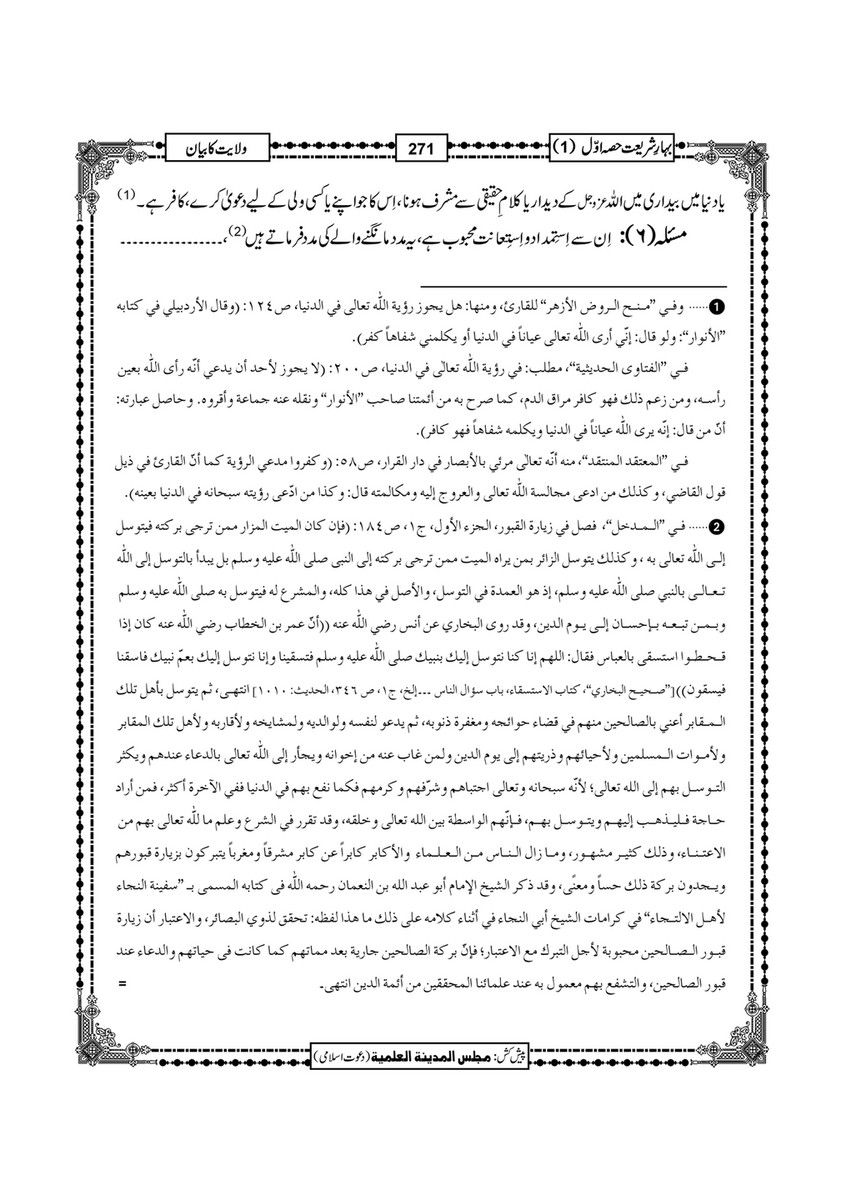 بہارِ شریعت حصہ اوّل (1)
271
ولایت کا بیان
یا دنیا میں بیداری میں اللہ عزوجل کے دیدار یا کلامِ حقیقی سے مشرف ہونا، اِس کا جو اپنے یا کسی ولی کے لیے دعویٰ کرے، کافر ہے۔ (1)
مسئلہ (۶): اِن سے اِستِمداد و اِستِعانت محبوب ہے، یہ مدد مانگنے والے کی مدد فرماتے ہیں (2)،۔۔۔۔۔۔۔۔۔۔۔۔۔۔۔۔۔
❶...... وفـي ”مـنـح الـروض الأزهر“ للقارئ، ومنها: هل يجوز رؤية الله تعالى في الدنيا، ص١٢٤: (وقال الأردبيلي في كتابه
”الأنوار“: ولو قال: إنّي أرى الله تعالى عياناً في الدنيا أو يكلمني شفاهاً كفر).
فـي ”الفتاوى الحديثية“، مطلب: في رؤية الله تعالى في الدنيا، ص٢٠٠: (لا يجوز لأحد أن يدعي أنّه رأى الله بعين
رأسـه، ومن زعم ذلك فهو كافر مراق الدم، كما صرح به من أئمتنا صاحب ”الأنوار“ ونقله عنه جماعة وأقروه. وحاصل عبارته:
أنّ من قال: إنّه يرى الله عياناً في الدنيا ويكلمه شفاهاً فهو كافر).
فـي ”المعتقد المنتقد“، منه أنّه تعالى مرئي بالأبصار في دار القرار، ص٥٨: (وكفروا مدعي الرؤية كما أنّ القارئ في ذيل
قول القاضي، وكذلك من ادعى مجالسة الله تعالى والعروج إليه ومكالمته قال: وكذا من ادّعى رؤيته سبحانه في الدنيا بعينه).
❷...... فـي ”الـمـدخل“، فصل في زيارة القبور، الجزء الأول، ج١، ص١٨٤: (فإن كان الميت المزار ممن ترجى بركته فيتوسل
إلـى الله تعالى به ، وكذلك يتوسل الزائر بمن يراه الميت ممن ترجى بركته إلى النبي صلى الله عليه وسلم بل يبدأ بالتوسل إلى الله
تـعـالـى بالنبي صلى الله عليه وسلم، إذ هو العمدة في التوسل، والأصل في هذا كله، والمشرع له فيتوسل به صلى الله عليه وسلم
وبـمـن تبعـه بـإحسان إلـى يـوم الدين، وقد روى البخاري عن أنس رضي الله عنه ((أنّ عمر بن الخطاب رضي الله عنه كان إذا
قـحـطـوا استسقى بالعباس فقال: اللهم إنا كنا نتوسل إليك بنبيك صلى الله عليه وسلم فتسقينا وإنا نتوسل إليك بعمّ نبيك فاسقنا
فيسقون))[”صحيح البخاري“، كتاب الاستسقاء، باب سؤال الناس ...إلخ، ج١، ص ٣٤٦، الحديث: ١٠١٠] انتهـى، ثم يتوسل بأهل تلك
الـمـقابر أعني بالصالحين منهم في قضاء حوائجه ومغفرة ذنوبه، ثم يدعو لنفسه ولوالديه ولمشايخه ولأقاربه ولأهل تلك المقابر
ولأمـوات الـمسلمين ولأحيائهم وذريتهم إلى يوم الدين ولمن غاب عنه من إخوانه ويجأر إلى الله تعالى بالدعاء عندهم ويكثر
التـوسـل بهم إلى الله تعالى؛ لأنّه سبحانه وتعالى اجتباهم وشرّفهم وكرمهم فكما نفع بهم في الدنيا ففي الآخرة أكثر، فمن أراد
حـاجة فـليـذهـب إليهـم ويتـوسـل بهـم، فـإنّهم الواسطة بين الله تعالى وخلقه، وقد تقرر في الشرع وعلم ما لله تعالى بهم من
الاعتـنـاء، وذلك كثيـر مشهـور، ومـا زال النـاس مـن الـعـلـمـاء والأكابر كابراً عن كابر مشرقاً ومغرباً يتبركون بزيارة قبورهم
ويـجـدون بركة ذلك حساً ومعنًى، وقد ذكر الشيخ الإمام أبو عبد الله بن النعمان رحمه الله فى كتابه المسمى بـ ”سفينة النجاء
لأهـل الالتـجـاء“ في كرامات الشيخ أبي النجاء في أثناء كلامه على ذلك ما هذا لفظه: تحقق لذوي البصائر، والاعتبار أن زيارة
قبـور الـصـالحين محبوبة لأجل التبرك مع الاعتبار؛ فإنّ بركة الصالحين جارية بعد مماتهم كما كانت فى حياتهم والدعاء عند
قبور الصالحين، والتشفع بهم معمول به عند علمائنا المحققين من أئمة الدين انتهى۔ =
پیش کش: مجلس المدينة العلمية (دعوت اسلامی)